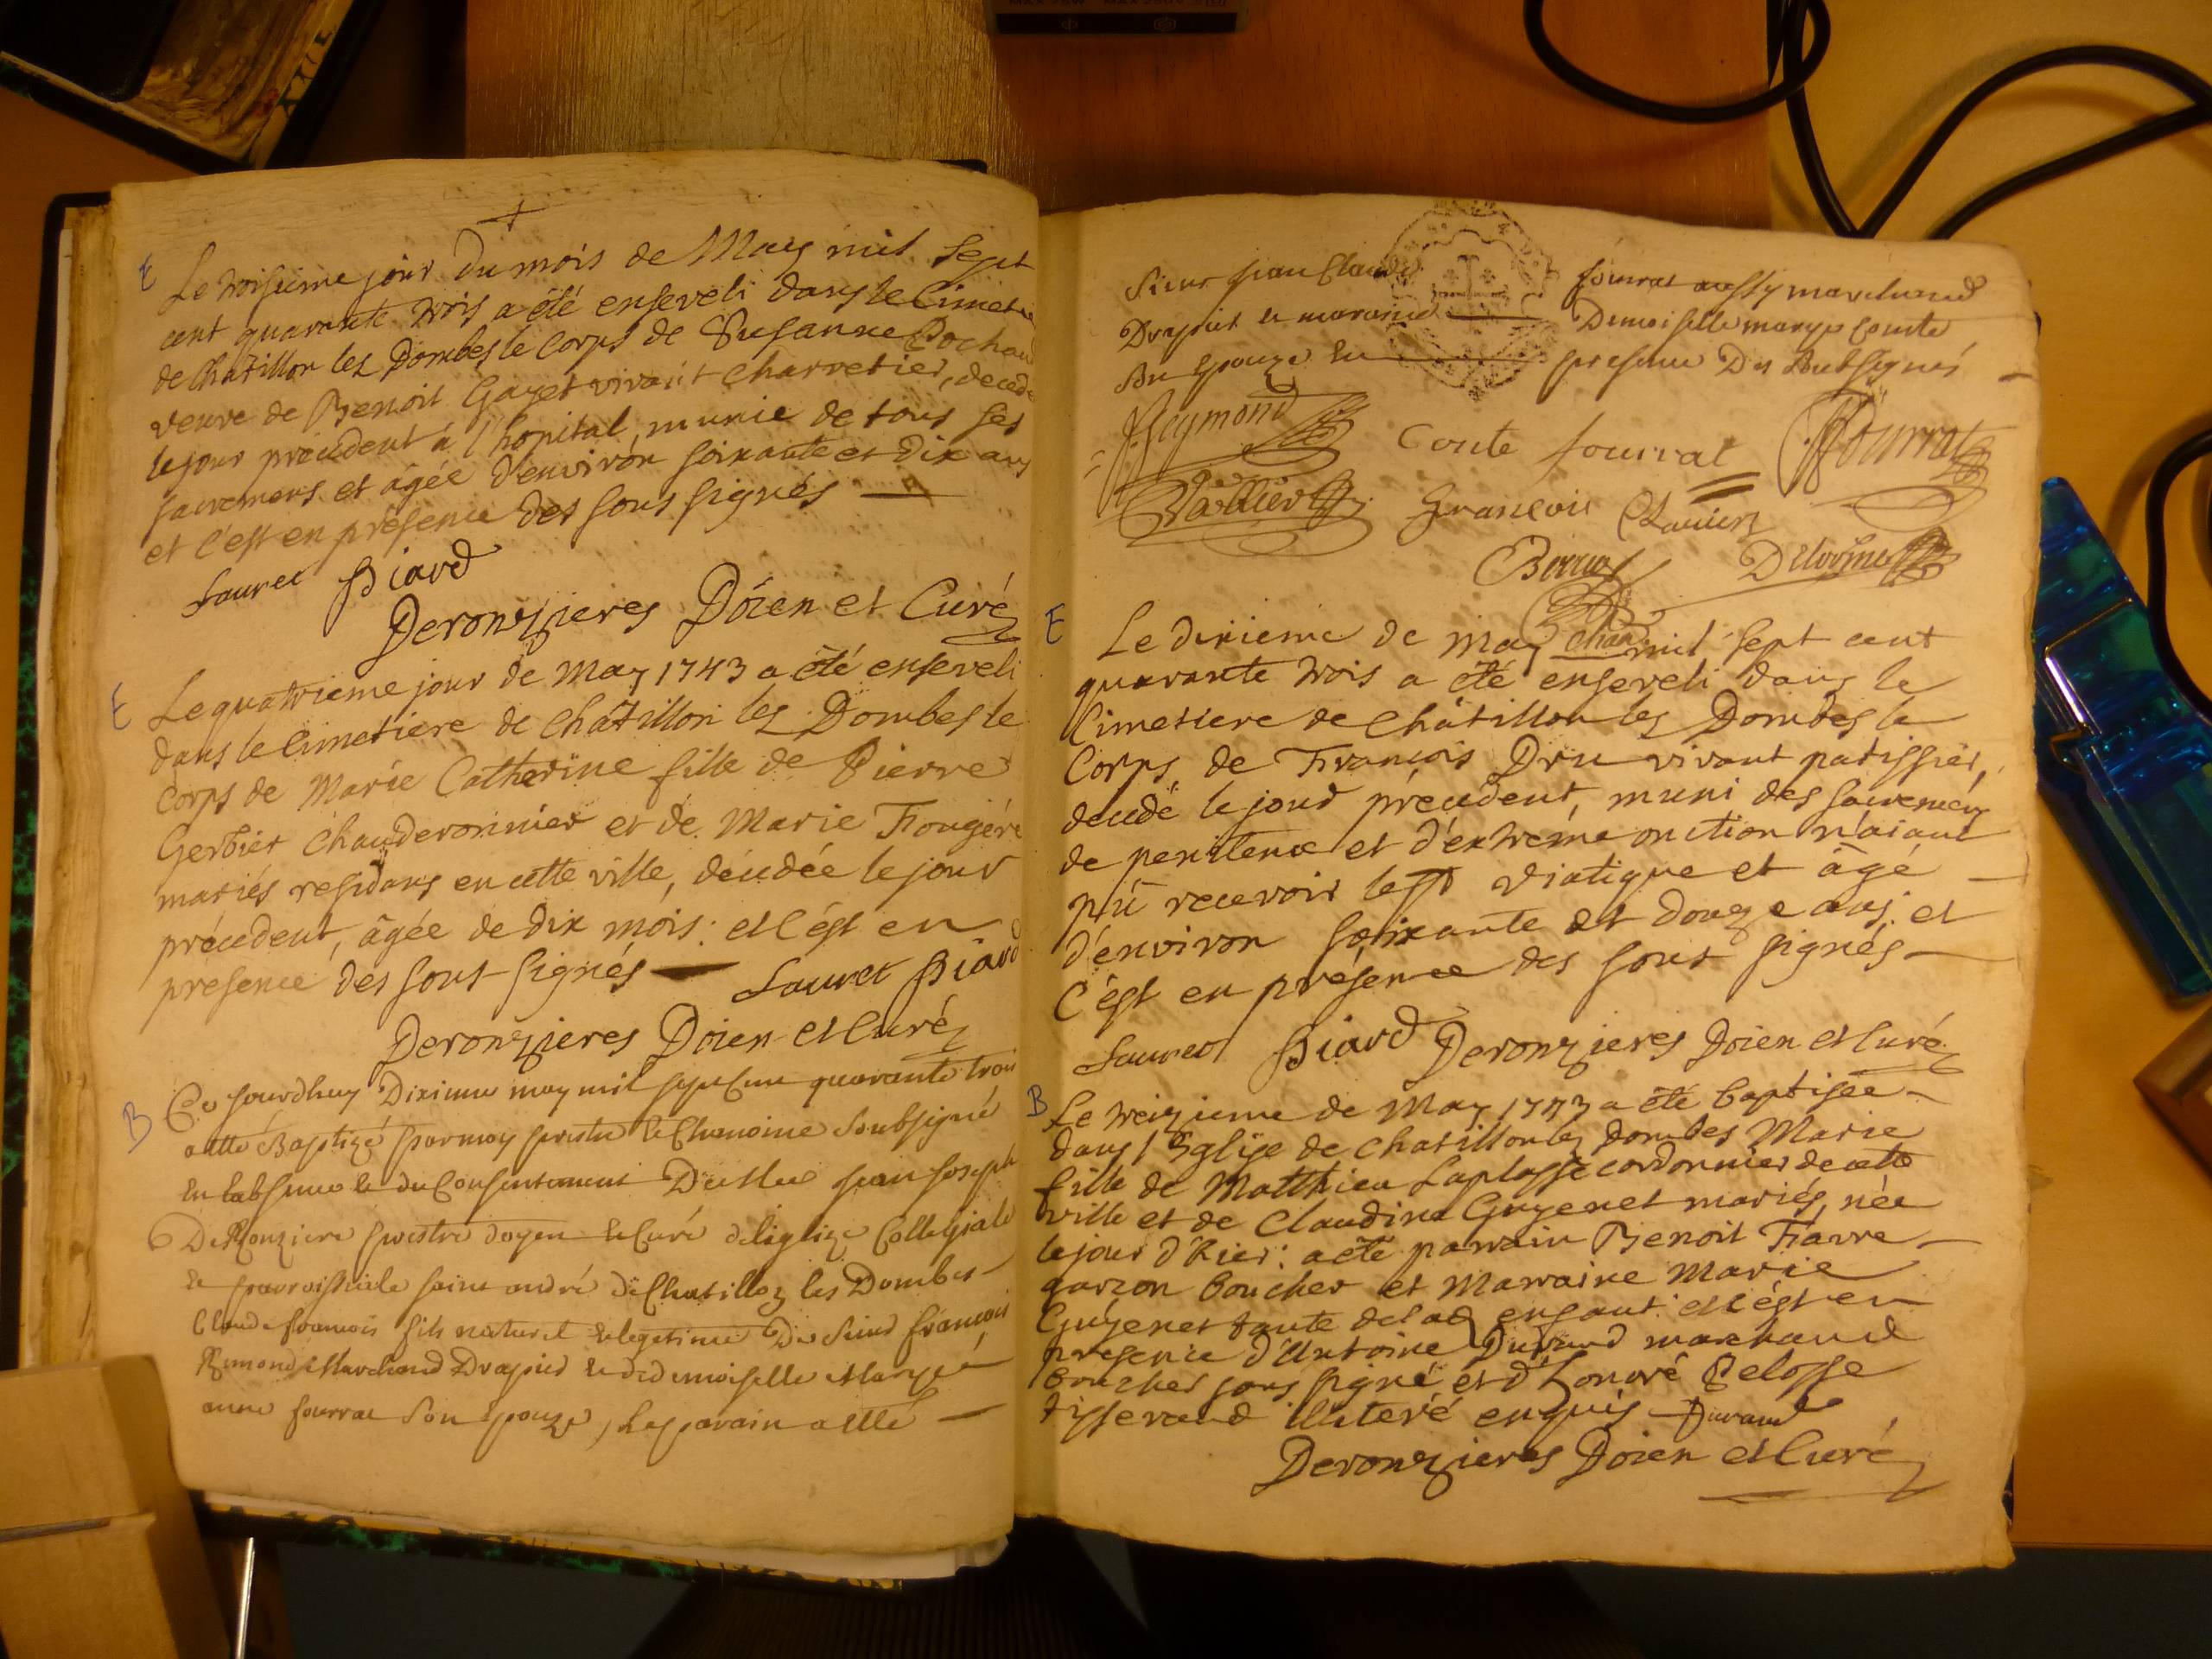 E
Le troisieme jour du mois de May mil sept
cent quarante trois a été enseveli dans le Cimetie
de Chatillon les Dombes le corps de Susanne Pochan
veuve de Benoit Gayet vivant charretier, decedé
le jour précédent a l'hopital munie de tous ses
sacremens et agée d'environ soixante et dix ans
et c'est en présence des sous signés
Lauret Biard
Deronzieres Doien et Curé
E
Le quatrieme jour de May 1743 a été enseveli
dans le Cimetiere de Châtillon les Dombes le
Corps de Marie Catherine fille de Pierre
Gerbier Chauderonnier et de Marie Fougére
mariés residans en cette ville, décédée le jour
précedent, âgée de dix mois: et c'est en
presence des sous signés Lauret Biard
Deronzieres Doien et Curé
B
Ce jourdhuy Dixieme may mil sept cent quarante trois
a etté Baptizé par moy prestre et Chanoine soubsigné
en labsence et du Consentement De Mre jean joseph
DeRonziere prestre doyen et Curé de léglize Collegiale
et parroissiale saint andré de Chatillon les Dombes
Claude francois fils naturel et legetime De sieur francois
Remond Marchand Drapier et de demoiselle Marye
anne fourrat son epouze, le parain a etté
Sieur jean Claude fourrat aussy marchand
Drapier la maraine Demoiselle marye Conte
son epouze en presence Des soubsignés
Reymond Conte fourrat fourrat
Vallier francois
Delorme
chan
E
Le dixieme de may mil sept cent
quarante trois a été enseveli dans le
Cimetiere de Châtillon les Dombes le
Corps de François Dru vivant patissier,
decedé le jour précedent, muni des sacremens
de penitence et d'extreme onction n'aiant
pû recevoir le st viatique et âgé
d'environ soixante et douze ans. et
C'est en présence des sous signés
Lauret Biard Deronzieres Doien et Curé
B
Le treizieme de May 1743 a été baptisée
dans l'Eglise de Chatillon les Dombes Marie
fille de Matthieu Laplasse cordonnier de cette
ville et de Claudine Guyenet mariés, née
le jour d'hier: a été parrain Benoit Favre
garzon boucher et Marraine Marie
Guyenet tante de lad enfant: et c'est en
presence d'Antoine Durand marchand
boucher sous signé et d'honoré Pelosse
tisserand illiteré enquis Durand
Deronzieres Doien et Curé